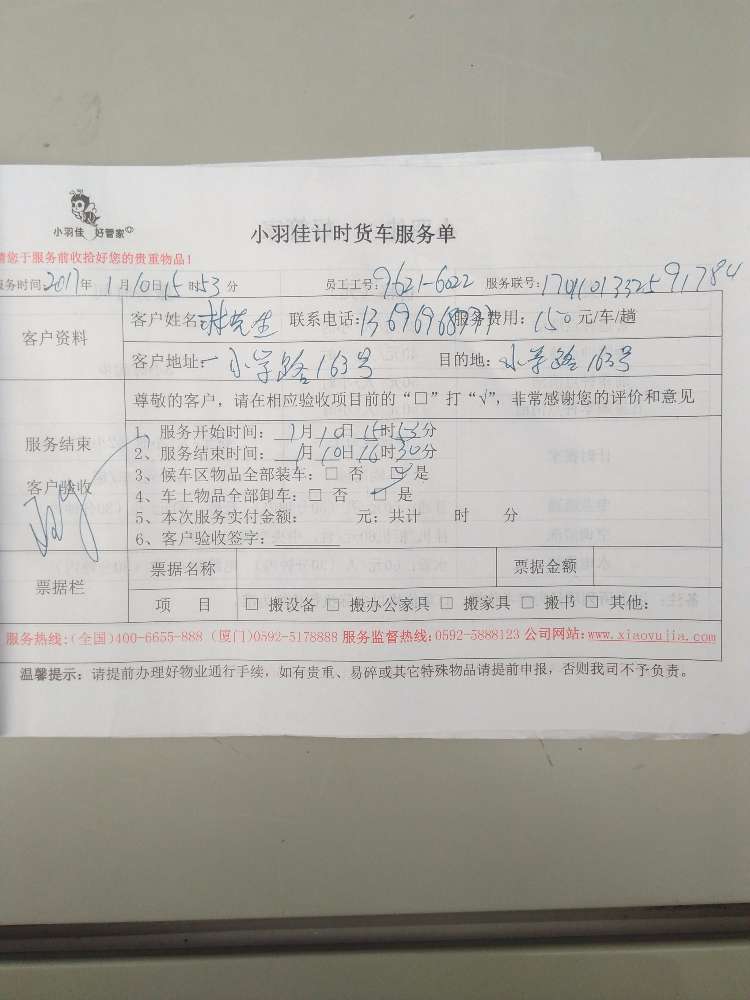 小羽佳 好管家
小羽佳计时货车服务单
请您于服务前收拾好您的贵重物品!
服务时间:2017年1月10日15时53分 员工工号:9621-6022 服务联号:
客户资料 客户姓名:林先生 联系电话: 服务费用:150元/车/趟
客户地址: 小学路163号 目的地:小学路163号
尊敬的客户,请在相应验收项目前的“□”打“√”,非常感谢您的评价和意见
服务结束
客户验收
1、服务开始时间:1月10日15时53分
2、服务结束时间:1月10日16时30分
3、候车区物品全部装车:□ 否 ☑ 是
4、车上物品全部卸车:□ 否 ☑ 是
5、本次服务实付金额: 元;共计 时 分
6、客户验收签字:
票据栏 票据名称 票据金额
项 目 □ 搬设备 □ 搬办公家具 □ 搬家具 □ 搬书 □ 其他:
服务热线:(全国)400-6655-888 (厦门)0592-5178888 服务监督热线:0592-5888123 公司网站:www.xiaoyujia.com
温馨提示:请提前办理好物业通行手续,如有贵重、易碎或其它特殊物品请提前申报,否则我司不予负责。